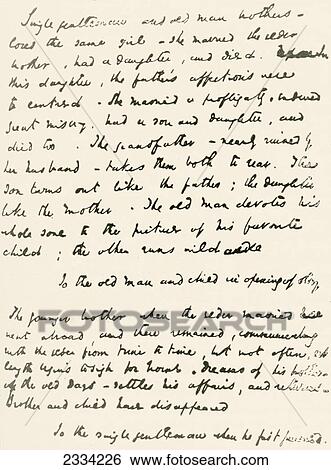 Single gentleman and old man brothers -
loves the same girl - she married the elder
brother, had a daughter, and died.
this daughter, the father's affections were
so centred. She married a profligate, endured
great misery. had a son and daughter, and
died too. The grandfather - nearly ruined by
her husband - takes them both to rear. The
son turns out like the father; the daughter
like the mother. The old man devotes his
whole soul to the picture of his favourite
child; the other runs wild
So the old man and child in opening of story.
The younger brother when the elder married
went abroad and there remained, communicating
with the elder from time to time, but not often, at
length begins to sigh for home. Dreams of his brother
of the old days - settles his affairs, and returns
Brother and child have disappeared
So the single gentleman when he first
fotosearch
2334226 www.fotosearch.com